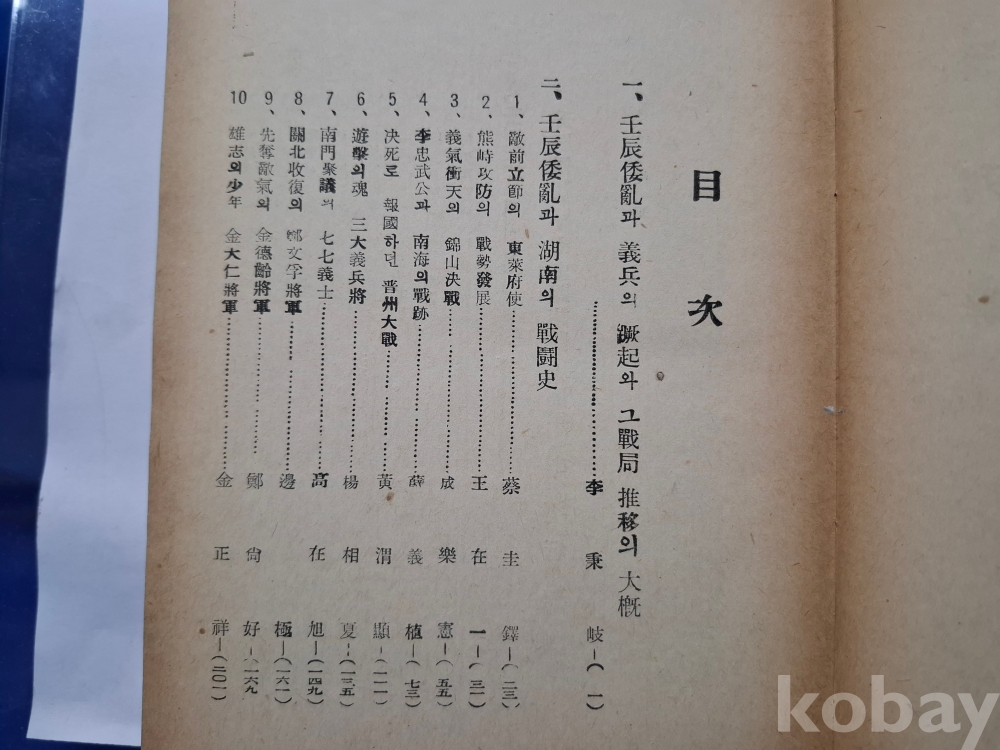 目次
一、壬辰倭亂과 義兵의 蹶起와 그 戰局 推移의 大槪
李秉岐 (一)
二、壬辰倭亂과 湖南의 戰鬪史
1、敵前立節의 東萊府使 蔡圭鐸 (二三)
2、熊峙攻防의 戰勢發展 王在一 (三一)
3、義氣衝天의 錦山決戰 成樂憲 (五五)
4、李忠武公과 南海의 戰跡 薛義植 (七三)
5、決死로 報國하던 晋州大戰 黃渭顯 (一一一)
6、遊擊의 魂 三大義兵將 楊相夏 (一三五)
7、南門聚議의 七七義士 高在旭 (一四九)
8、關北收復의 鄭文孚將軍 邊極 (一六一)
9、先奪敵氣의 金德齡將軍 鄭尙好 (一六九
10 雄志의 少年 金大仁將軍 金正祥 (二〇一)
kobay